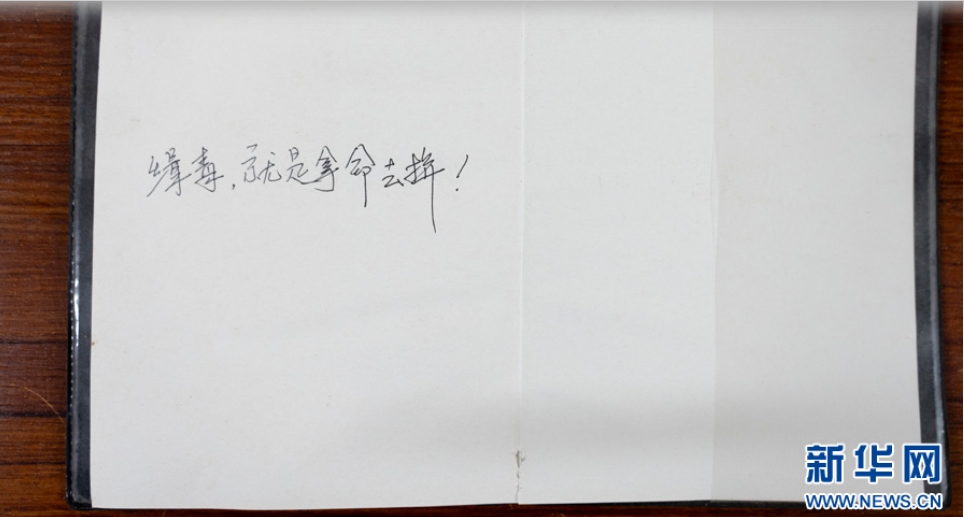 缉毒，就是拿命去拼！
新华网
WWW.NEWS.CN